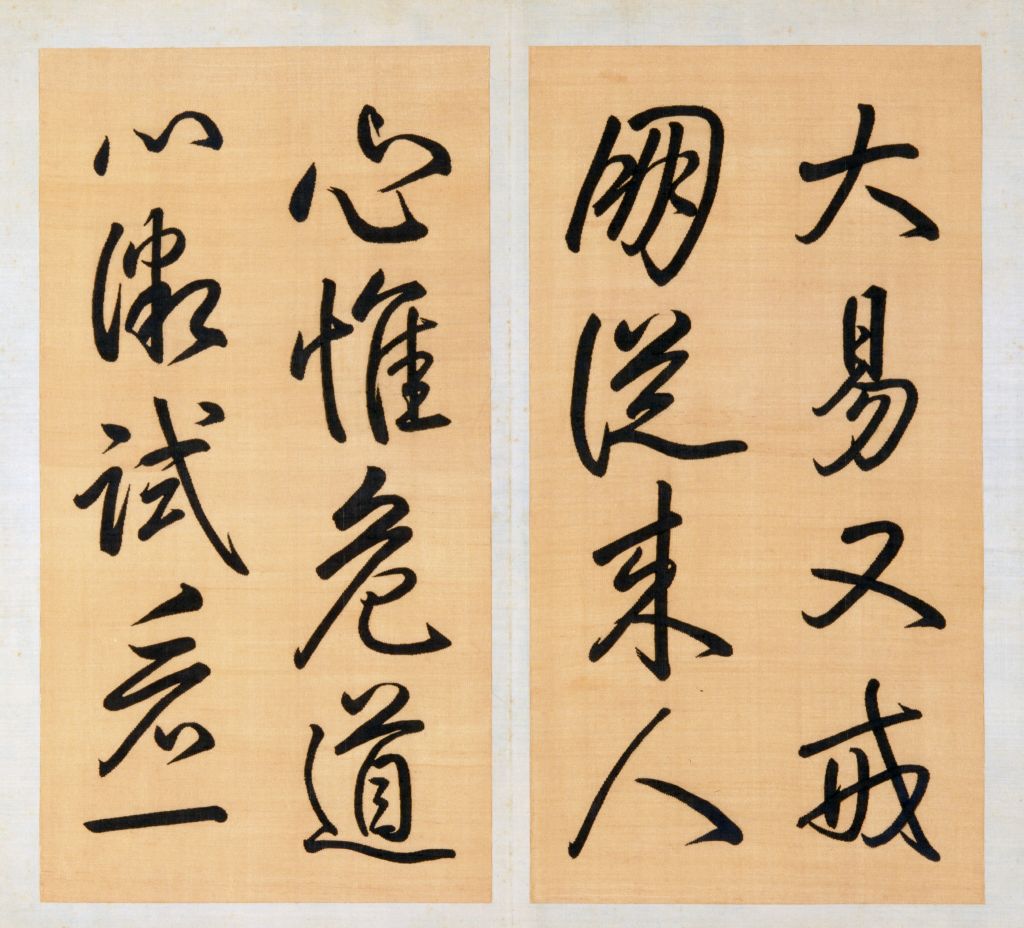 大易又戒
朋從来人
心惟危道
心微試看一